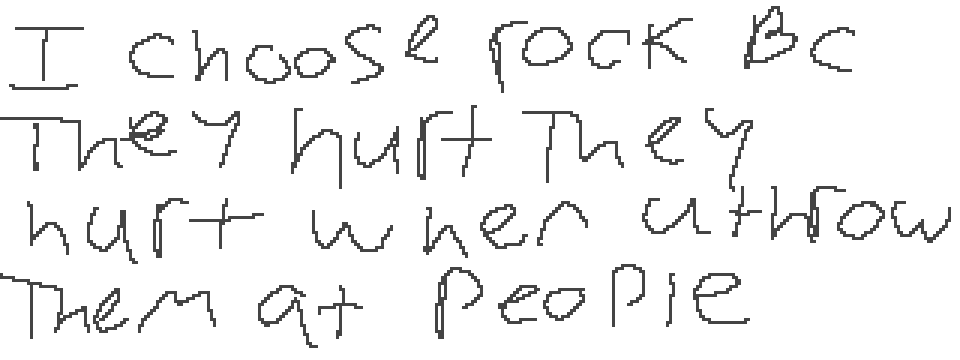 I choose rock Bc
They hurt They
hurt when u throw
Them at people